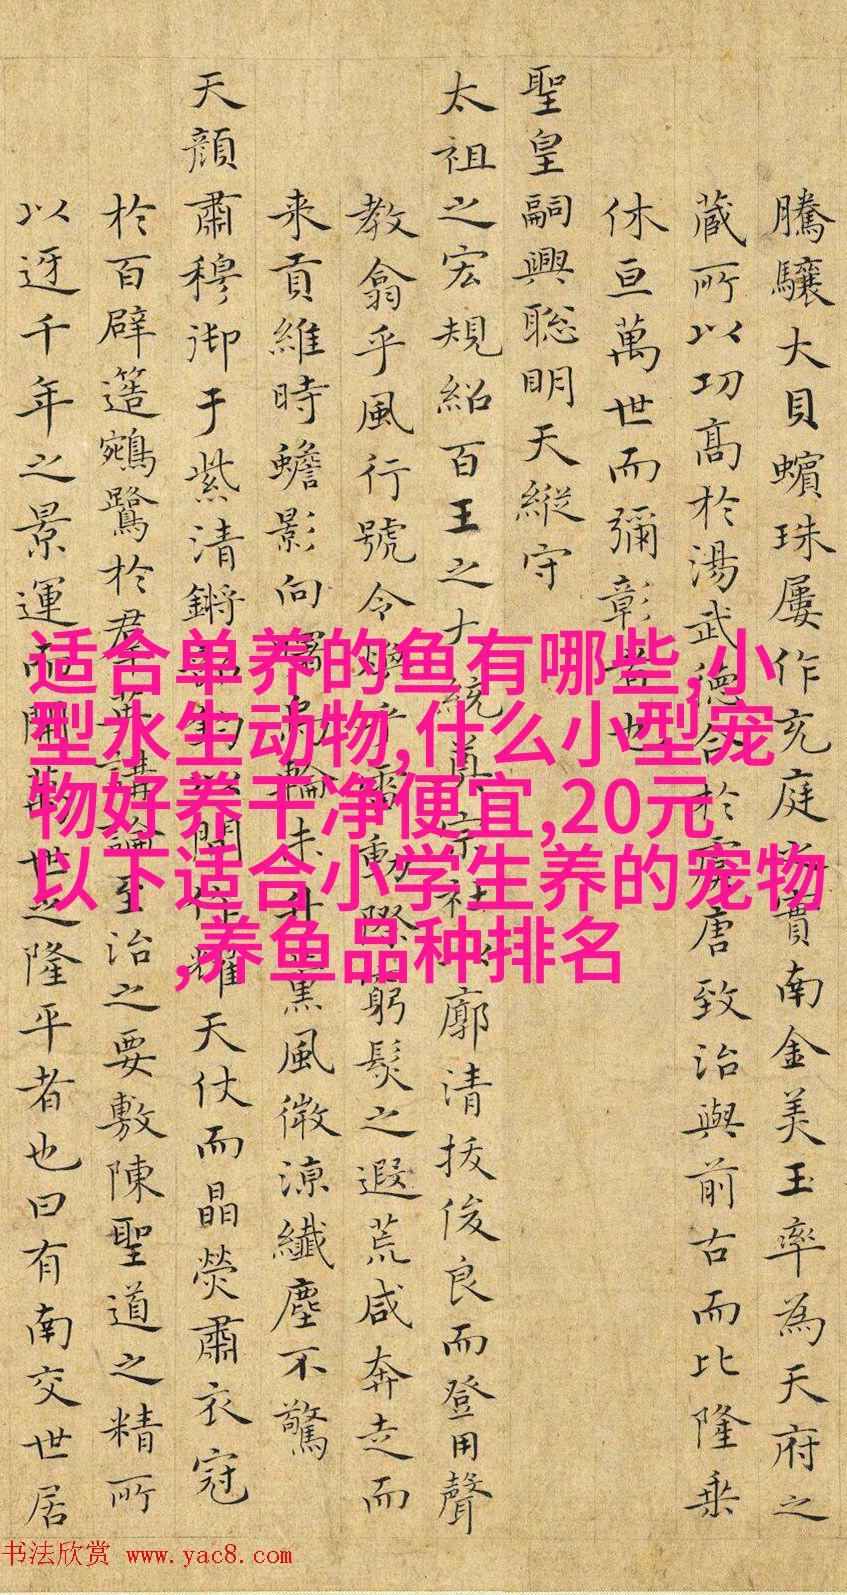 騰驤大貝蠙珠屢作充庭實南金美玉率為天府之
藏所以功高於湯武德合於虞唐致治與前古而比隆乘
休亘萬世而彌彰者也
聖皇嗣興聰明天縱守
太祖之宏規紹百王之大統真宗社廓清拔俊良而登用聲
教翕乎風行號令煥乎雷動際窮髮之遐荒咸奔走而
来貢維時蟾影向輪未升薰風微涼纖塵不驚
天顏肅穆御于紫清鏘閶仗耀天仗而晶熒肅衣冠
於百辟簉鵷鷺於群英講論至治之要敷陳聖道之精所
以迓千年之景運而開萬世之隆平者也曰有南交世居
适合单养的鱼有哪些,小
型水生动物,什么小型宠
物好养干净便宜,20元
以下适合小学生养的宠物
,养鱼品种排名
书法欣赏 www.yac8.com